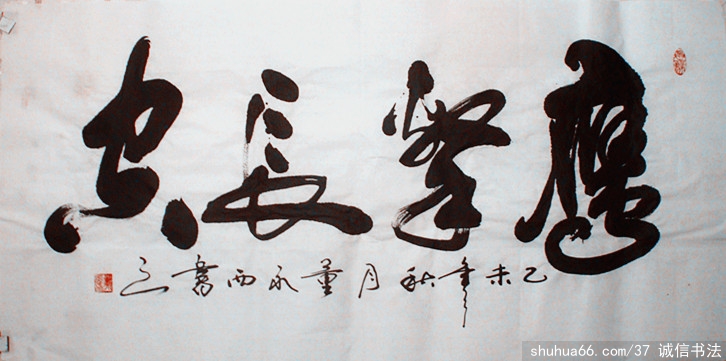 鷹擊長空
乙未年秋月董永西書之
shuhua66.com/37 诚信书法